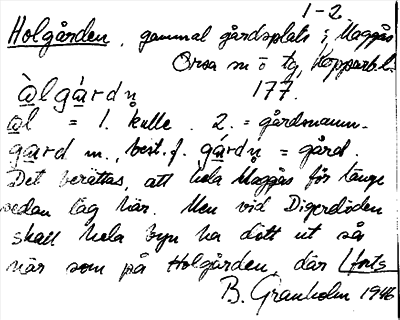 1-2.
Holgården, gammal gårdsplats i Maggås
Orsa sn o tg, Kopparb. l.
àlgárdn̥ 177.
àl = 1. kulle. 2. = gårdsnamn.
gard n., best. f. gárdn̥ = gård.
Det berättas, att hela Maggås för länge
sedan låg här. Men vid Digerdöden
skall hela byn ha dött ut så
när som på Holgården, där (forts
B. Granholm 1946